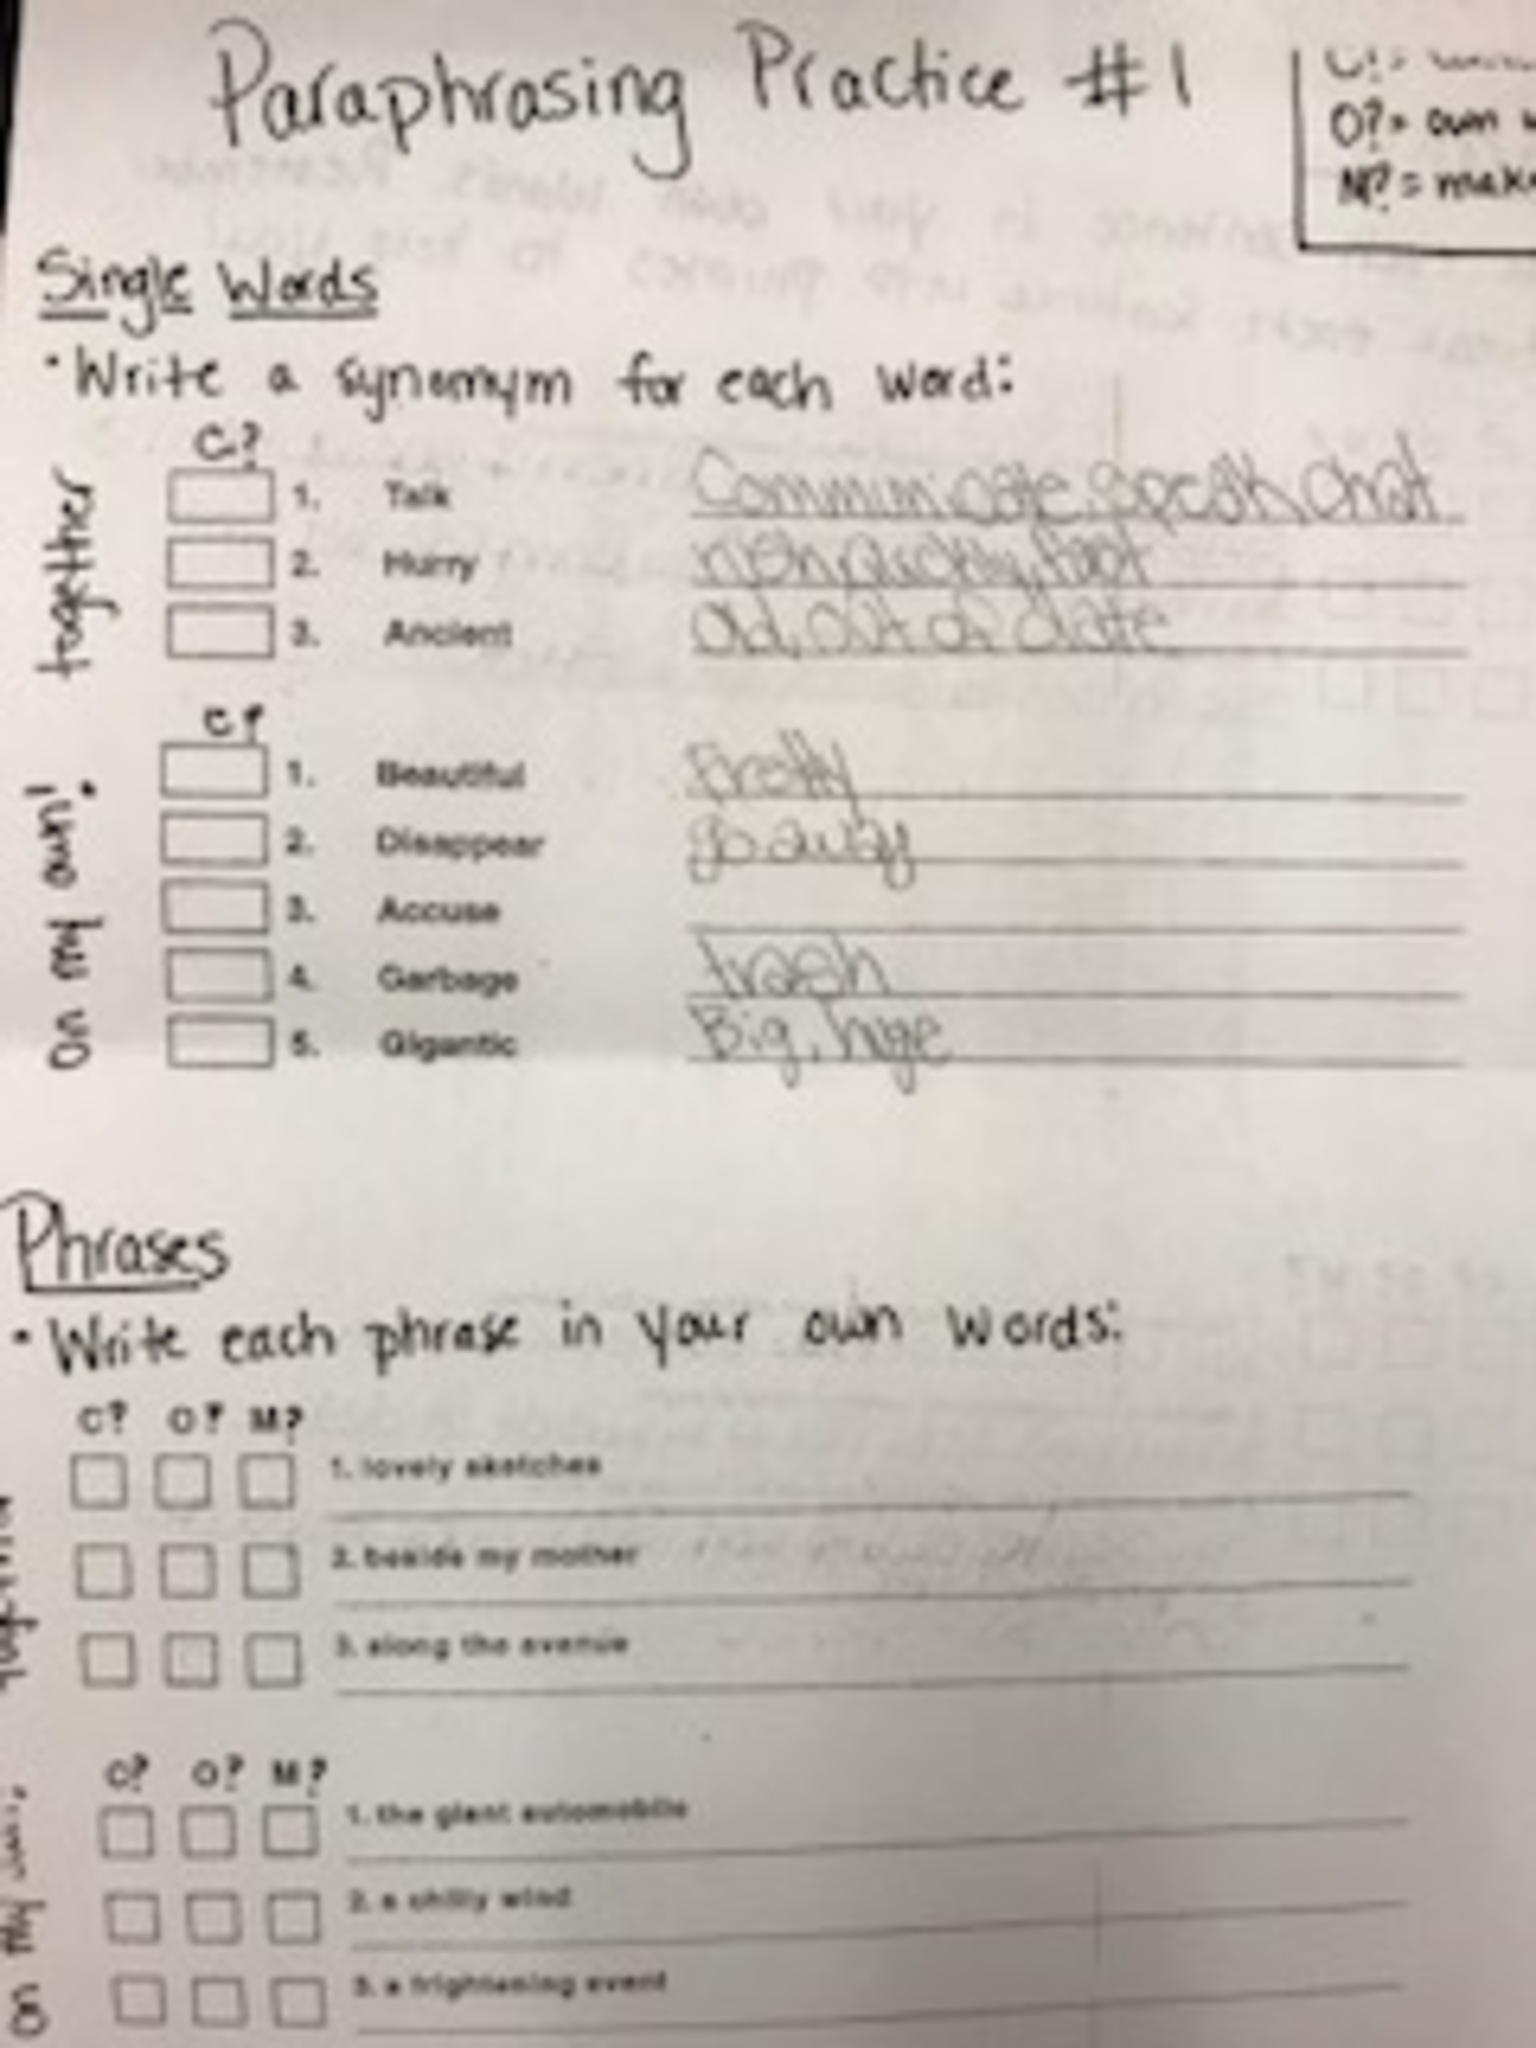 Paraphrasing Practice #1
O?= own
M? = make
Single Words
• Write a synomym for each word:
together
C?
1. Talk Commimicate, speak, chat
2. Hurry rush, quickly, fast
3. Ancient Old, out of date
on my own!
C?
1. Beautiful Pretty
2. Disappear go away
3. Accuse
4. Garbage trash
5. Gigantic Big, huge
Phrases
• Write each phrase in your own words:
C? O? M?
1. lovely sketches
2. beside my mother
3. along the avenue
on my own!
C? O? M?
1. the giant automobile
2. a chilly wind
3. a frightening event